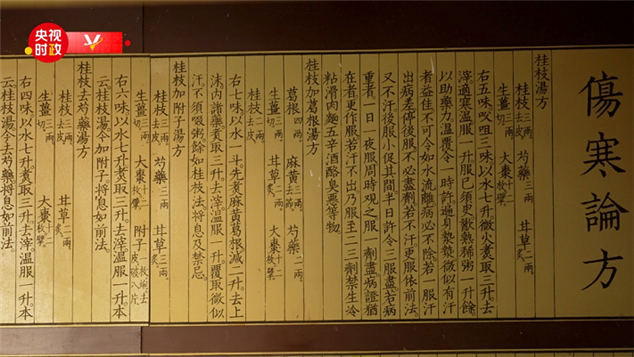 央视
时政
傷寒論方
桂枝湯方
桂枝三兩去皮 芍藥三兩 甘草二兩
生薑三兩切 大棗十二枚擘
右五味㕮咀三味以水七升微火煮取三升去
滓適寒溫服一升服已須臾歠熱稀粥一升餘
以助藥力溫覆令一時許遍身漐漐微似有汗
者益佳不可令如水流離病必不除若一服汗
出病差停後服不必盡劑若不汗更服依前法
又不汗後服小促其間半日許令三服盡若病
重者一日一夜服周時觀之服一劑盡病證猶
在者更作服若汗不出乃服至二三劑禁生冷
粘滑肉麵五辛酒酪臭惡等物
桂枝加葛根湯方
葛根四兩 麻黃三兩去節 芍藥二兩
生薑三兩切 甘草二兩 大棗十二枚擘
桂枝二兩去皮
右七味以水一斗先煮麻黃葛根減二升去上
沫內諸藥煮取三升去滓溫服一升覆取微似
汗不須啜粥餘如桂枝法將息及禁忌
桂枝加附子湯方
桂枝三兩去皮 芍藥三兩 甘草三兩
生薑三兩切 大棗十二枚擘 附子一枚炮去皮破八片
右六味以水七升煮取三升去滓溫服一升本
云桂枝湯今加附子將息如前法
桂枝去芍藥湯方
桂枝三兩去皮 甘草二兩
生薑三兩切 大棗十二枚擘
右四味以水七升煮取三升去滓溫服一升本
云桂枝湯今去芍藥將息如前法